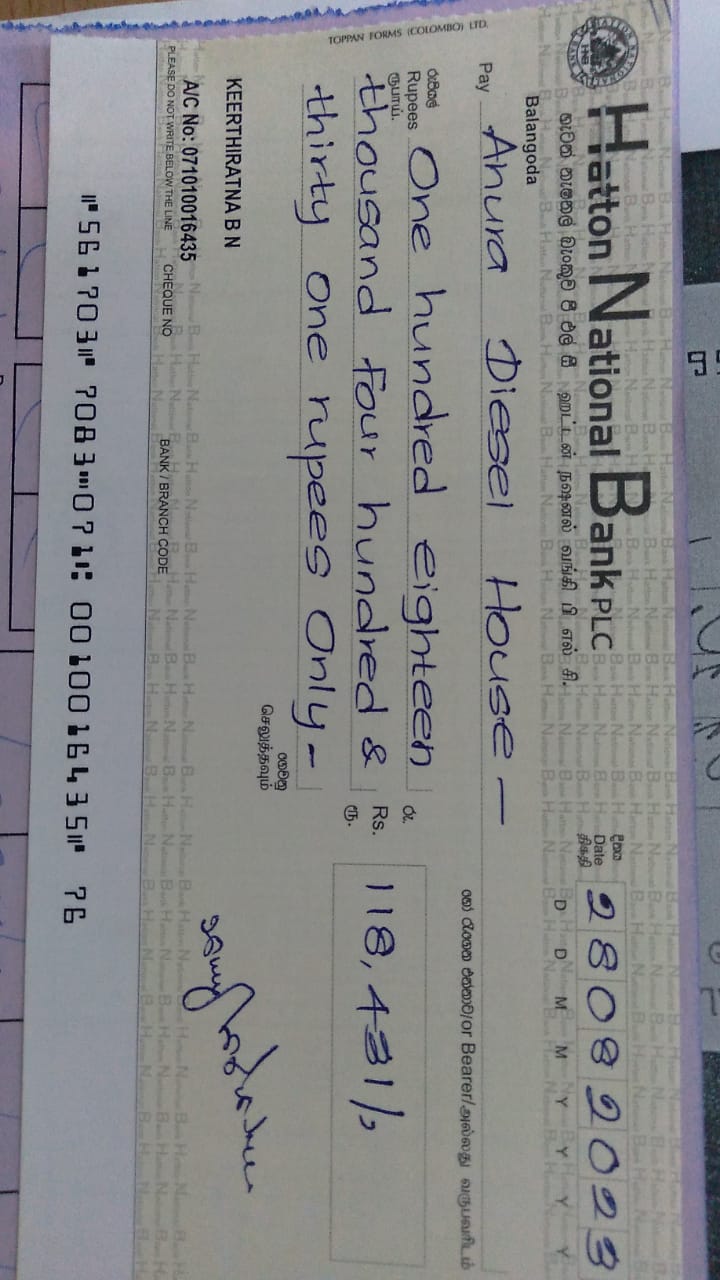 HATTON NATIONAL BANK PLC
හැටන් නැෂනල් බැංකුව පී එල් සී ஹட்டன் நஷனல் வங்கி பி எல் சி.
Balangoda
දිනය
Date
திகதி
28082023
D D M M Y Y Y Y
Pay Anura Diesel House —
හෝ රැගෙන එන්නාට/or Bearer/அல்லது வருபவரிடம்
රුපියල්
Rupees
ரூபாய்.
One hundred eighteen
thousand four hundred &
thirty one rupees Only —
රු.
Rs.
ரூ.
118,431/,
ගෙවනු
செலுத்தவும்
KEERTHIRATNA B N
A/C No: 071010016435
PLEASE DO NOT WRITE BELOW THE LINE CHEQUE NO BANK / BRANCH CODE
⑈561703⑈ 7083⑉071⑆ 0010016435⑈ 76
TOPPAN FORMS (COLOMBO) LTD.